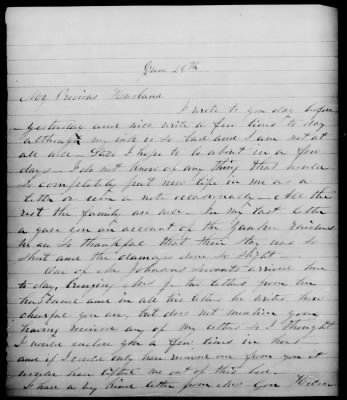 June 20th
My Precious Husband
I wrote to you day before
yesterday and will write a few lines to day
although my ink is so bad and I am not at
all well - I hope to be about in a few
days - I do not know of any thing that would
so completely put new life in me as a
letter or even a note occasionally - All the
rest the family are well - In my last letter
I gave you an account of the Yankee raiders
so thankful that their stay was so
short and the damage done so slight -
One of Mr Johnsons servants arrived here
to day, bringing Mrs J the letters from her
husband and in all his letters he writes how
cheerful you are, but does not mention your
having received any of my letters so I thought
I would enclose you a few lines in hers
and if I could only have received one from you it
would have lifted me out of this bed.
I had a kind letter from Mrs Gen